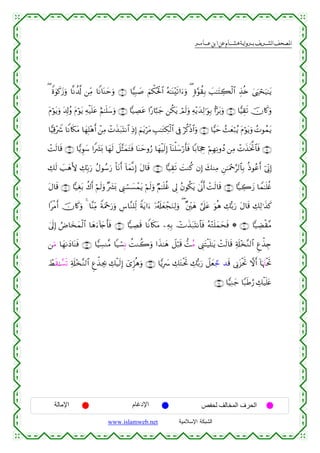 المصحف الشريف برواية هشام عن ابن عامر
يَٰيَحْيَىٰ خُذِ الْكِتَٰبَ بِقُوَّةٍ وَءَاتَيْنَٰهُ الْحُكْمَ صَبِيًّا وَحَنَانًا مِّن لَّدُنَّا وَزَكَوٰةً
وَكَانَ تَقِيًّا وَبَرًّا بِوَٰلِدَيْهِ وَلَمْ يَكُن جَبَّارًا عَصِيًّا وَسَلَٰمٌ عَلَيْهِ يَوْمَ وُلِدَ وَيَوْمَ
يَمُوتُ وَيَوْمَ يُبْعَثُ حَيًّا وَاذْكُرْ فِي الْكِتَٰبِ مَرْيَمَ إِذِ انتَبَذَتْ مِنْ أَهْلِهَا مَكَانًا شَرْقِيًّا
فَاتَّخَذَتْ مِن دُونِهِمْ حِجَابًا فَأَرْسَلْنَا إِلَيْهَا رُوحَنَا فَتَمَثَّلَ لَهَا بَشَرًا سَوِيًّا قَالَتْ
إِنِّي أَعُوذُ بِالرَّحْمَٰنِ مِنكَ إِن كُنتَ تَقِيًّا قَالَ إِنَّمَا أَنَا رَسُولُ رَبِّكِ لِأَهَبَ لَكِ
غُلَٰمًا زَكِيًّا قَالَتْ أَنَّىٰ يَكُونُ لِي غُلَٰمٌ وَلَمْ يَمْسَسْنِي بَشَرٌ وَلَمْ أَكُ بَغِيًّا قَالَ
كَذَٰلِكِ قَالَ رَبُّكِ هُوَ عَلَيَّ هَيِّنٌ وَلِنَجْعَلَهُ ءَايَةً لِّلنَّاسِ وَرَحْمَةً مِّنَّا وَكَانَ أَمْرًا
مَّقْضِيًّا ۞ فَحَمَلَتْهُ فَانتَبَذَتْ بِهِ مَكَانًا قَصِيًّا فَأَجَاءَهَا الْمَخَاضُ إِلَىٰ
جِذْعِ النَّخْلَةِ قَالَتْ يَٰلَيْتَنِي مُتُّ قَبْلَ هَٰذَا وَكُنتُ نِسْيًا مَّنسِيًّا فَنَادَىٰهَا مَن
تَحْتَهَا أَلَّا تَحْزَنِي قَد جَّعَلَ رَبُّكِ تَحْتَكِ سَرِيًّا وَهُزِّي إِلَيْكِ بِجِذْعِ النَّخْلَةِ تَسَّٰقَطْ
عَلَيْكِ رُطَبًا جَنِيًّا
الحرف المخالف لحفص الإدغام الإمالة
www.islamweb.net الشبكة الإسلامية